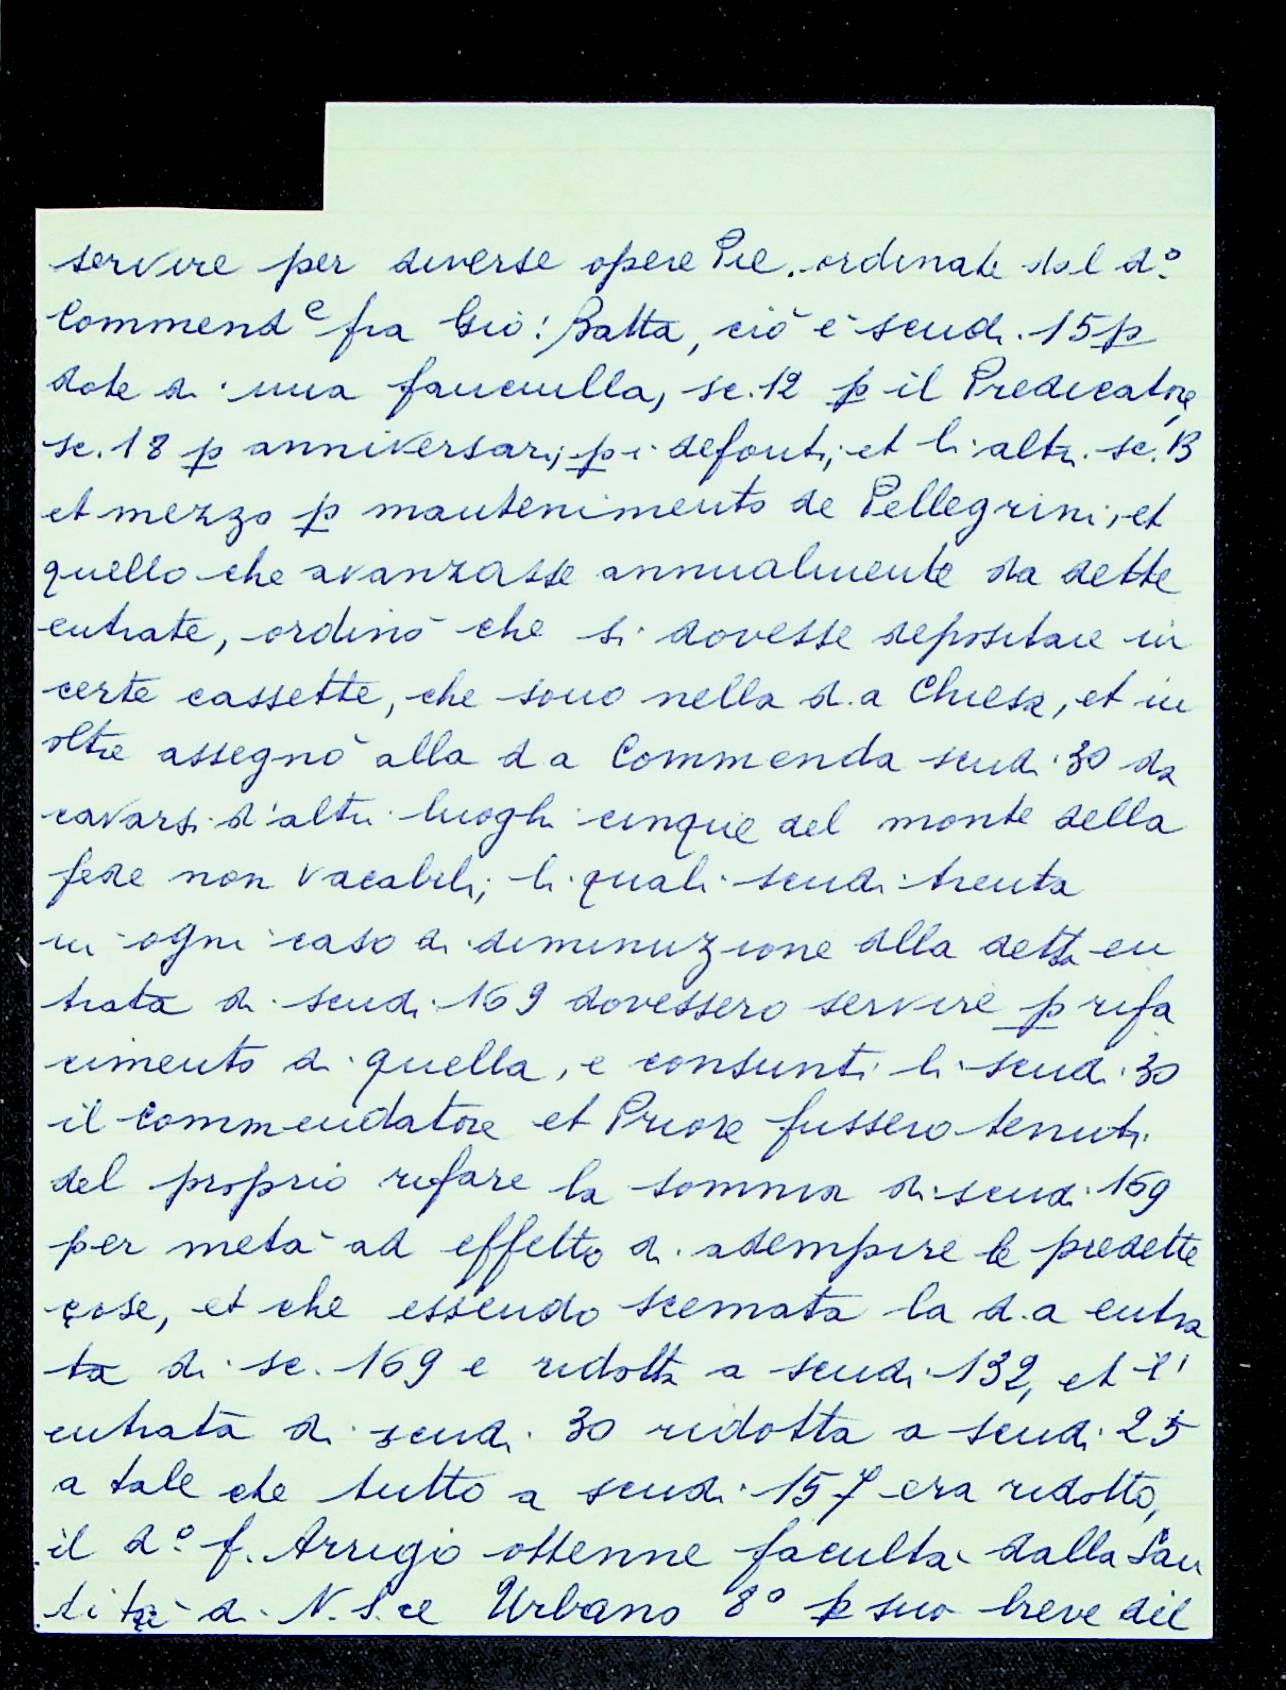 servire per diverse opere Pie. ordinate dal d.º
Commend.e fra Giò: Batta, ciò è scudi. 15 p
dote di una fanciulla, sc. 12 p il Predicatore,
sc. 18 p anniversarij p i defonti, et li altri sc. 13
et mezzo p mantenimento de Pellegrini, et
quello che avanzasse annualmente da dette
entrate, ordinò che si dovesse depositare in
certe cassette, che sono nella d.a Chiesa, et in
oltre assegnò alla d a Commenda scudi 30 da
cavarsi d'altri luoghi cinque del monte della
fede non vacabili, li quali scudi trenta
in ogni caso di diminuzione alla detta en
trata di scudi 169 dovessero servire p rifa
cimento di quella, e consunti li scudi 30
il Commendatore et Priore fussero tenuti
del proprio rifare la somma di scudi 169
per metà ad effetto di adempire le predette
cose, et che essendo scemata la d.a entra
ta di sc. 169 e ridotta a scudi 132, et l'
entrata di scudi 30 ridotta a scudi 25
a tale che tutto a scudi 157 era ridotto,
il d.º f. Arrigo ottenne facultà dalla San
tità di N. S.re Urbano 8º p suo breve del